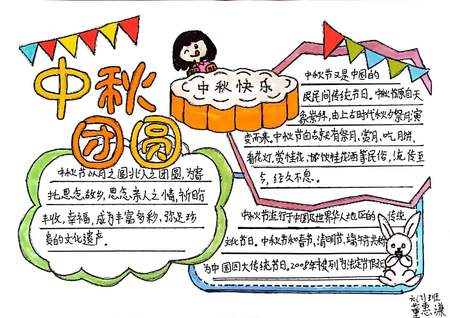 中秋
团圆
中秋快乐
中秋节又是中国的
民民间传统节日。中秋节源自天
象崇拜,由上古时代秋夕祭月演
变而来。中秋节自古就有祭月、赏月、吃月饼、
看花灯、赏桂花、饮桂花酒等民俗,流传至
今,经久不息。
中秋节以月之圆兆人之团圆,为寄
托思念故乡,思念亲人之情,祈盼
丰收、幸福,成为丰富多彩、弥足珍
贵的文化遗产。
中秋节流行于中国及世界华人地区的传统
文化节日。中秋节和春节、清明节、端午节共称
为中国四大传统节日。2008年被列为法定节假日
六(1)班
董惠谦